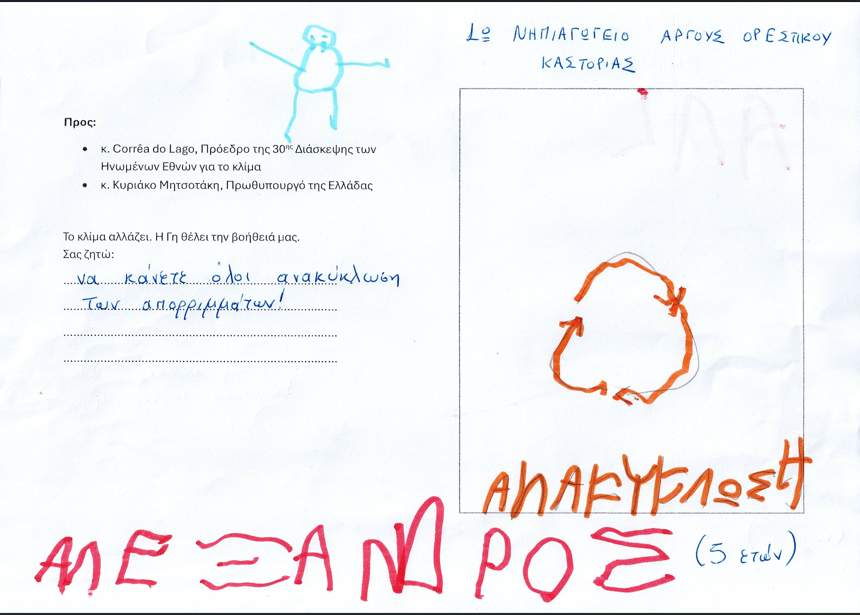 1ο ΝΗΠΙΑΓΩΓΕΙΟ ΑΡΓΟΥΣ ΟΡΕΣΤΙΚΟΥ
ΚΑΣΤΟΡΙΑΣ
Προς:
• κ. Corrêa do Lago, Πρόεδρο της 30ης Διάσκεψης των
Ηνωμένων Εθνών για το κλίμα
• κ. Κυριάκο Μητσοτάκη, Πρωθυπουργό της Ελλάδας
Το κλίμα αλλάζει. Η Γη θέλει την βοήθειά μας.
Σας ζητώ:
να κάνετε όλοι ανακύκλωση
των απορριμμάτων!
ΑΝΑΚΥΚΛΩΣΗ
ΑΛΕΞΑΝΔΡΟΣ (5 ετών)